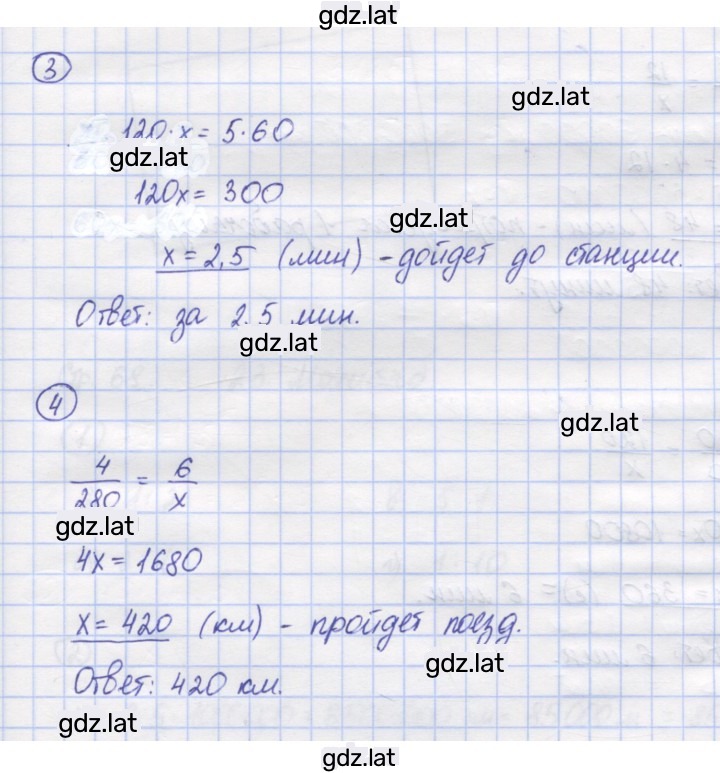 gdz.lat
3
gdz.lat
120·x = 5·60
gdz.lat
120x = 300
gdz.lat
x = 2,5 (мин) - дойдет до станции.
Ответ: за 2.5 мин.
gdz.lat
4
gdz.lat
4/280 = 6/x
gdz.lat
4x = 1680
x = 420 (км) - пройдет поезд.
gdz.lat
Ответ: 420 км.
gdz.lat
gdz.lat